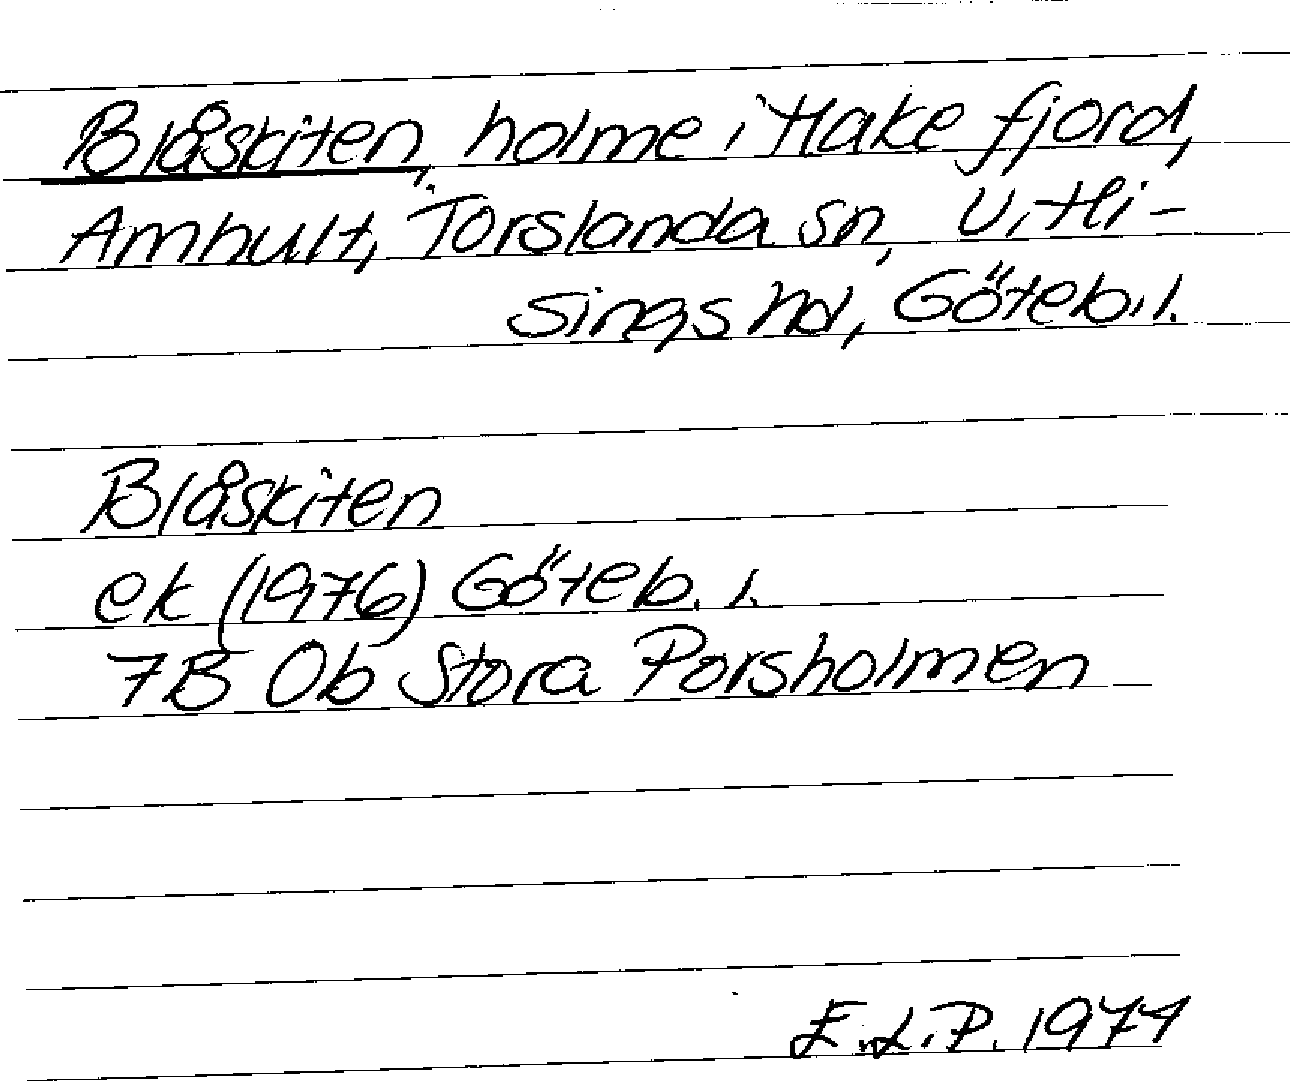 Blåskiten, holme i Hake fjord,
Amhult, Torslanda sn, V. Hi-
sings hd, Göteb. l.
Blåskiten
ek (1976) Göteb. l.
7B 0b Stora Porsholmen
E.L.P. 1977